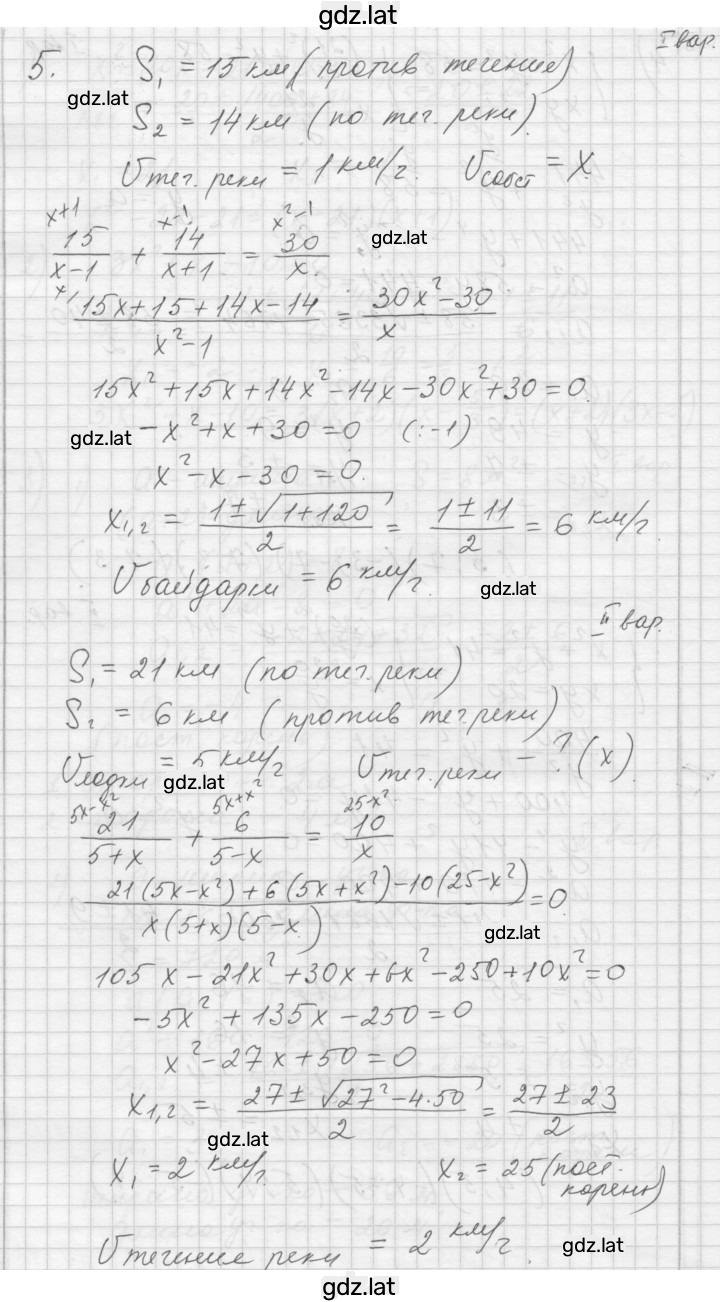 gdz.lat
I вар.
5. S₁ = 15 км (против течение)
gdz.lat
S₂ = 14 км (по теч. реки)
υ теч. реки = 1 км/ч. υ собст = x.
x+1 x-1 x²-1
15/(x-1) + 14/(x+1) = 30/x. gdz.lat
x/ (15x+15+14x-14)/(x²-1) = (30x²-30)/x
15x²+15x+14x²-14x-30x²+30=0.
gdz.lat -x²+x+30=0 (:-1)
x²-x-30=0.
x₁,₂ = (1±√(1+120))/2 = (1±11)/2 = 6 км/ч.
υ байдарки = 6 км/ч. gdz.lat
II вар.
S₁ = 21 км (по теч. реки)
S₂ = 6 км (против теч. реки)
υ лодки = 5 км/ч υ теч. реки - ? (x)
gdz.lat
5x-x² 5x+x² 25-x²
21/(5+x) + 6/(5-x) = 10/x
(21(5x-x²)+6(5x+x²)-10(25-x²))/(x(5+x)(5-x)) = 0.
gdz.lat
105x-21x²+30x+6x²-250+10x²=0
-5x²+135x-250=0
x²-27x+50=0
x₁,₂ = (27±√(27²-4·50))/2 = (27±23)/2
gdz.lat
x₁ = 2 км/ч. x₂ = 25 (пост.
корень)
υ течение реки = 2 км/ч. gdz.lat
gdz.lat